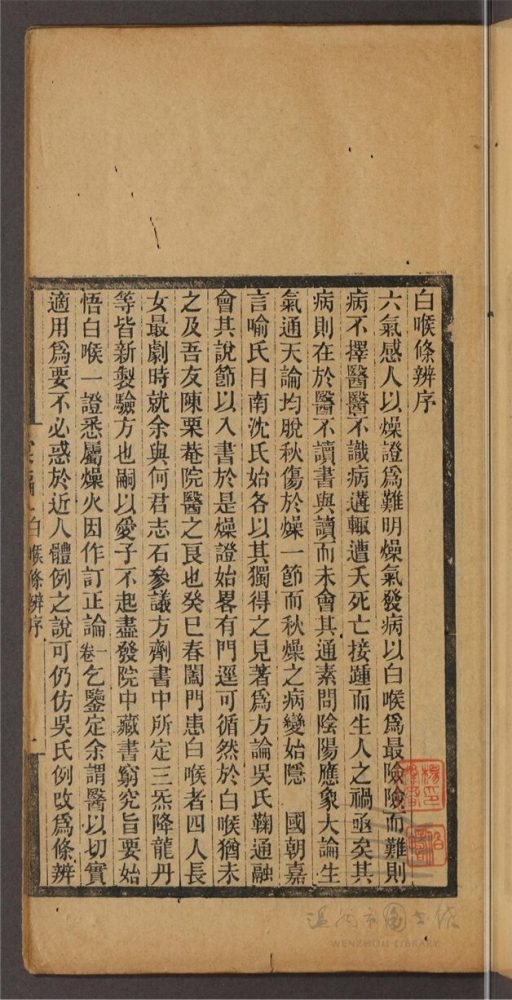 白喉條辨序
六氣感人以燥證爲難明燥氣發病以白喉爲最險險而難則
病不擇醫醫不識病遘輒遭夭死亡接踵而生人之禍亟矣其
病則在於醫不讀書與讀而未會其通素問陰陽應象大論生
氣通天論均脫秋傷於燥一節而秋燥之病變始隱 國朝嘉
言喻氏目南沈氏始各以其獨得之見著爲方論吳氏鞠通融
會其說節以入書於是燥證始畧有門逕可循然於白喉猶未
之及吾友陳栗菴院醫之良也癸巳春闔門患白喉者四人長
女最劇時就余與何君志石參議方劑書中所定三炁降龍丹
等皆新製驗方也嗣以愛子不起盡發院中藏書窮究旨要始
悟白喉一證悉屬燥火因作訂正論一卷乞鑒定余謂醫以切實
適用爲要不必惑於近人體例之說可仍仿吳氏例改爲條辨
白喉條辨序
一
溫州市圖書館
WENZHOU LIBRARY